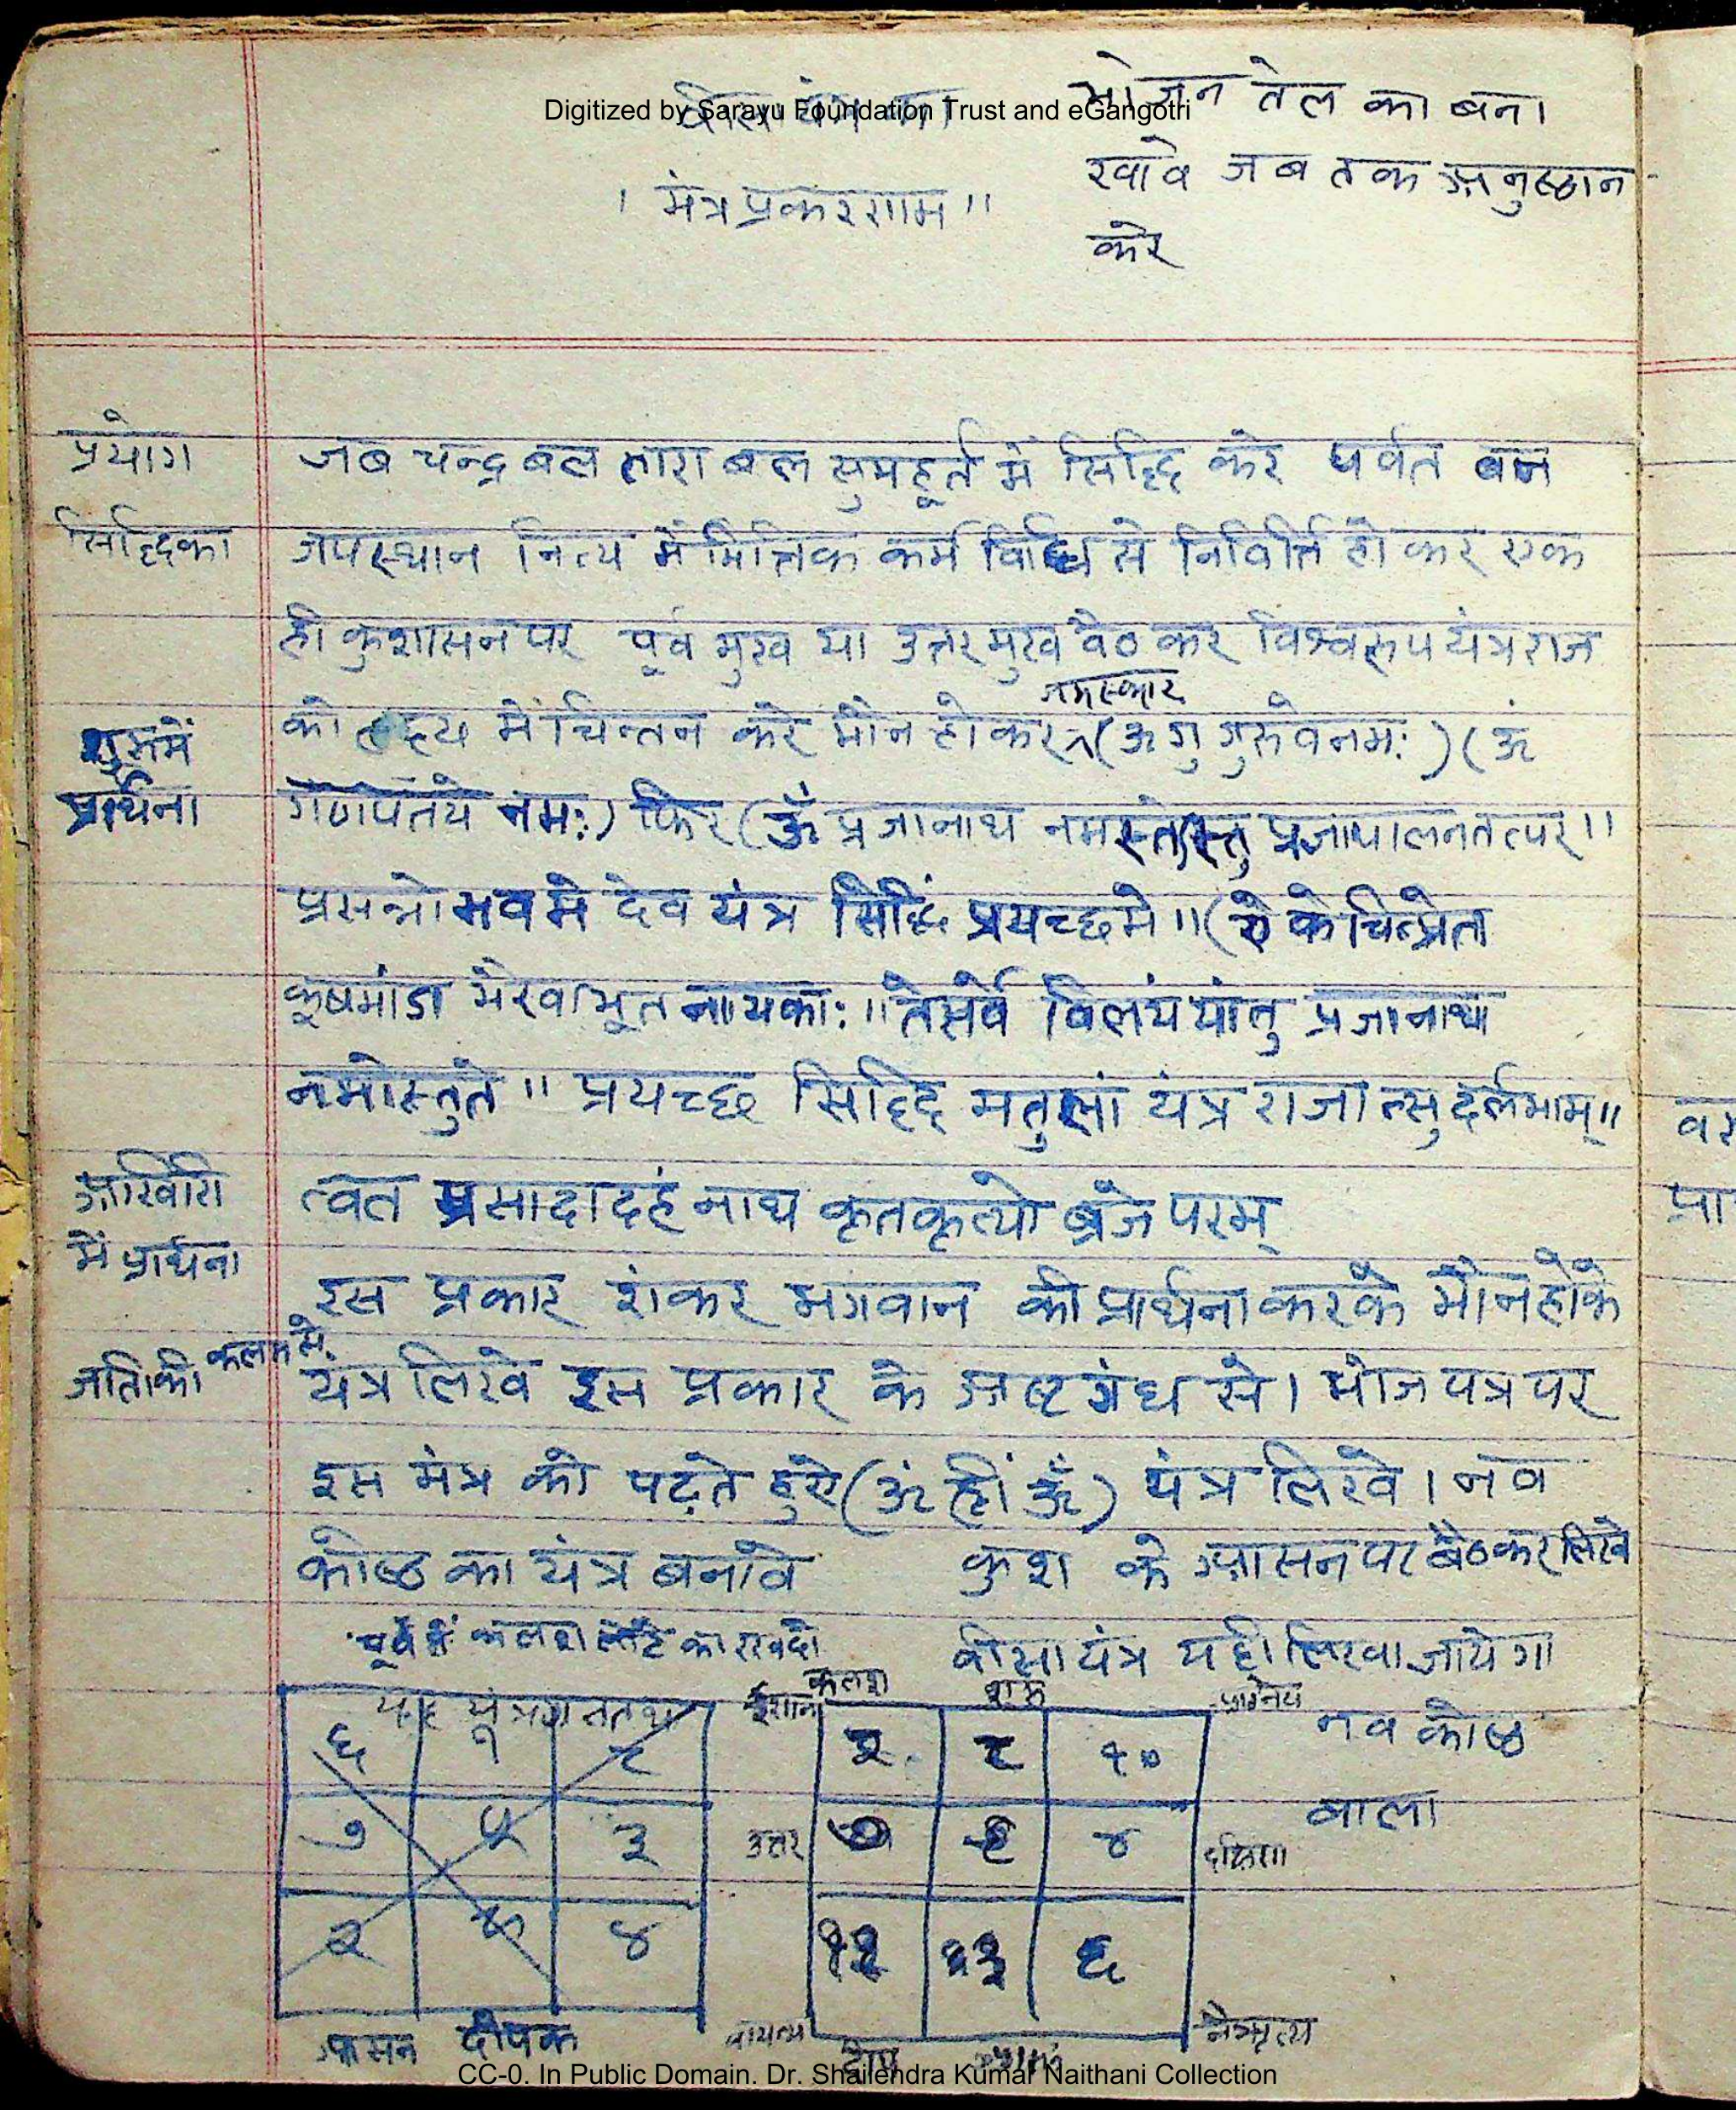 Digitized by Sarayu Foundation Trust and eGangotri
भोजन तेल का बना
खावे जब तक अनुष्ठान
करे
। मंत्र प्रकरणाम ॥
प्रयोग
सिद्धिका
जब चन्द्र बल तारा बल सुमहूर्त में सिद्धि करे पर्वत बन
जपस्थान नित्य नैमित्तिक कर्म विधि से निवित्ति हो कर एक
ही कुशासन पर पूर्व मुख या उत्तर मुख बैठ कर विश्वरूप यंत्रराज
नमस्कार
को हृदय में चिन्तन करे मौन हो कर (ॐ गु गुरुवे नमः) (ॐ
शुरूमें
प्रार्थना
गणपतये नमः) फिर (ॐ प्रजानाथ नमस्तेस्तु प्रजापालनतत्पर॥
प्रसन्नो भव मे देव यंत्र सिद्धिं प्रयच्छमे॥ (ये केचित्प्रेता
कूष्मांडा भैरवा भूत नायकाः॥ ते सर्वे विलयं यांतु प्रजानाथ
नमोस्तुते॥ प्रयच्छ सिद्धि मतुलां यंत्र राजा त्सुदर्लभाम्॥
आखिरी
में प्रार्थना
त्वत प्रसादादहं नाथ कृतकृत्यो ब्रजे परम्
इस प्रकार शंकर भगवान की प्रार्थना करके मौन होके
कलम से
यंत्र लिखे इस प्रकार के अष्ट गंध से। भोज पत्र पर
इस मंत्र को पढ़ते हुऐ (ॐ ह्रीं ॐ) यंत्र लिखे। नव
कोष्ठ का यंत्र बनावे कुश के आसन पर बैठ कर लिखे
पूर्व में कलश लोटे का रख दो
वीसा यंत्र यही लिखा जायेगा
यह यंत्र गलत था
६ १ ८
७ ५ ३
२ ९ ४
आसन दीपक
कलश
ईशान आग्नेय
२ ८ १०
उत्तर ४ दक्षिण
६
वायव्य नैऋत्य
नव कोष्ठ
वाला
CC-0. In Public Domain. Dr. Shailendra Kumar Naithani Collection